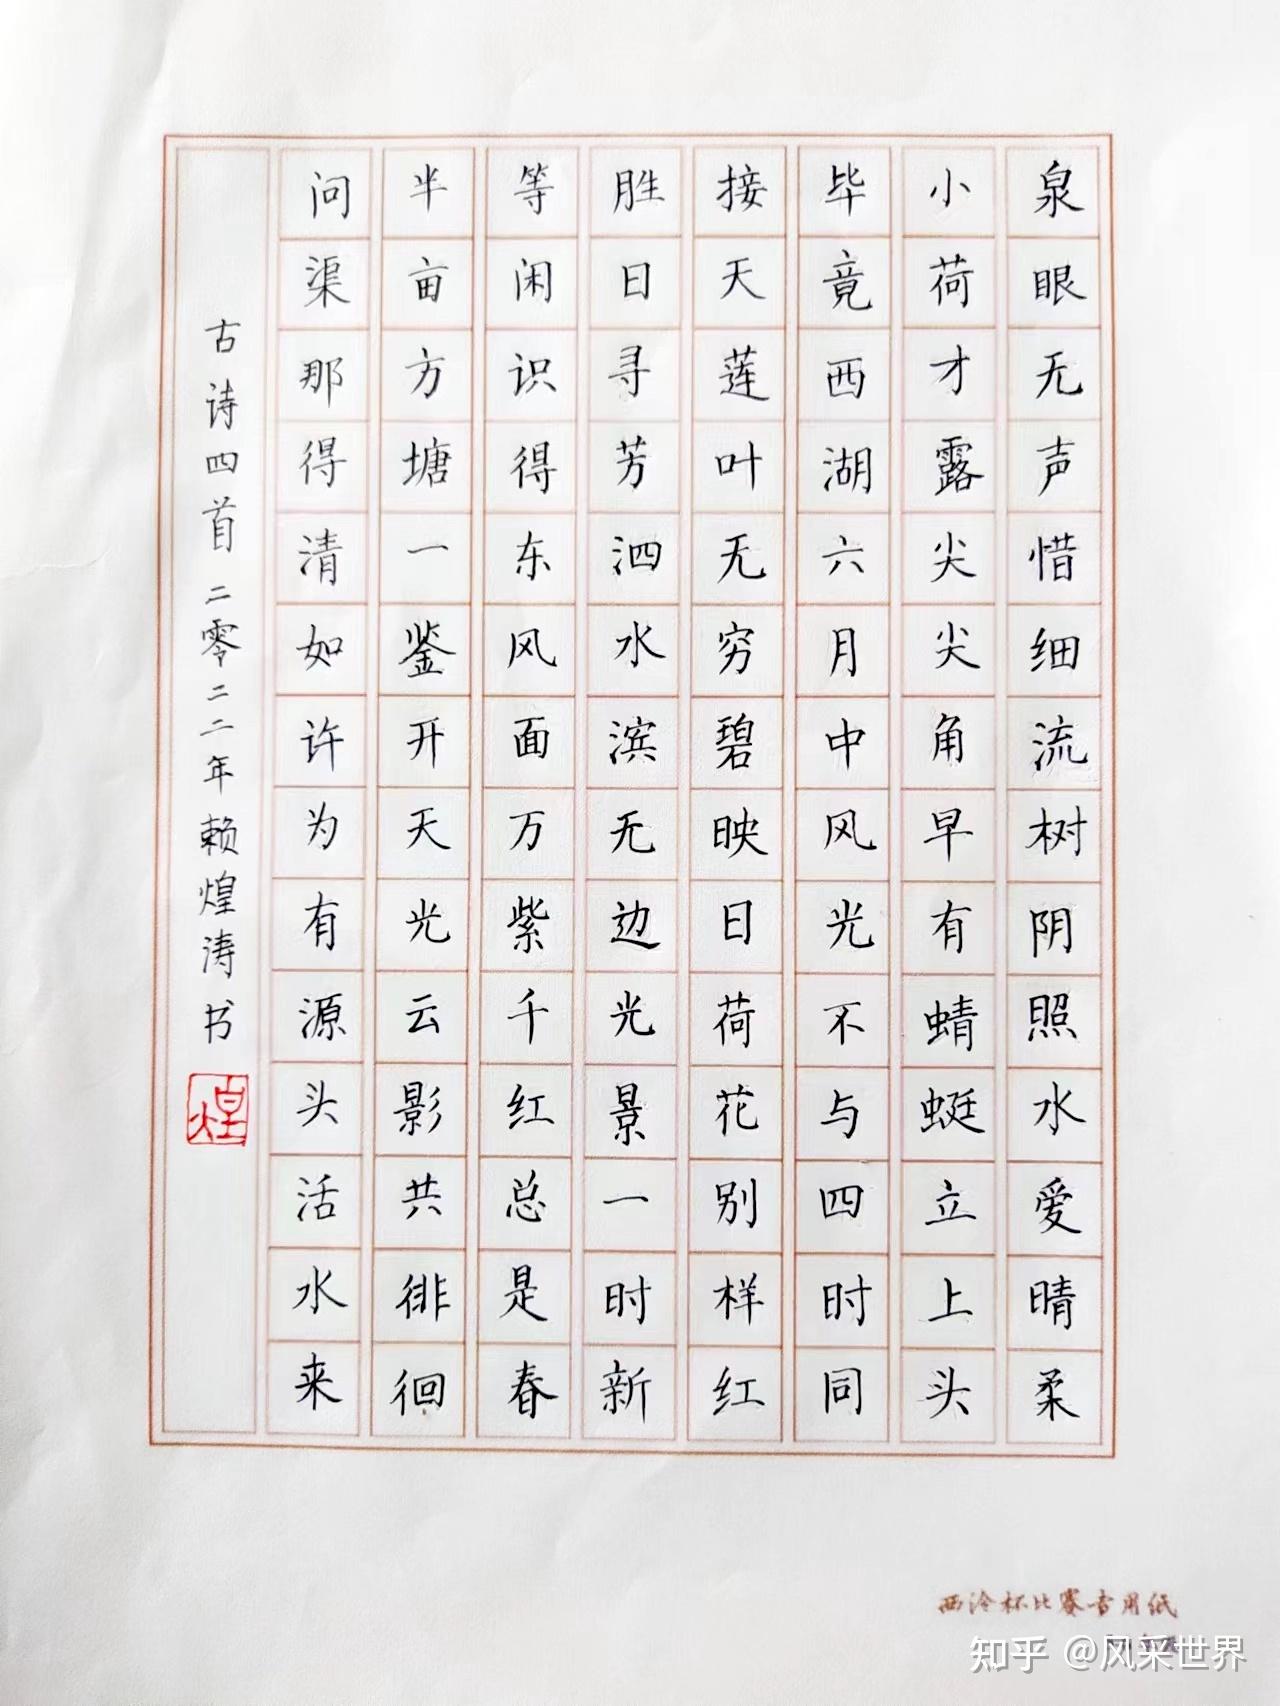 泉眼无声惜细流树阴照水爱晴柔
小荷才露尖尖角早有蜻蜓立上头
毕竟西湖六月中风光不与四时同
接天莲叶无穷碧映日荷花别样红
胜日寻芳泗水滨无边光景一时新
等闲识得东风面万紫千红总是春
半亩方塘一鉴开天光云影共徘徊
问渠那得清如许为有源头活水来
古诗四首二零二二年赖煌涛书
煌
西泠杯比赛专用纸
知乎 @风采世界